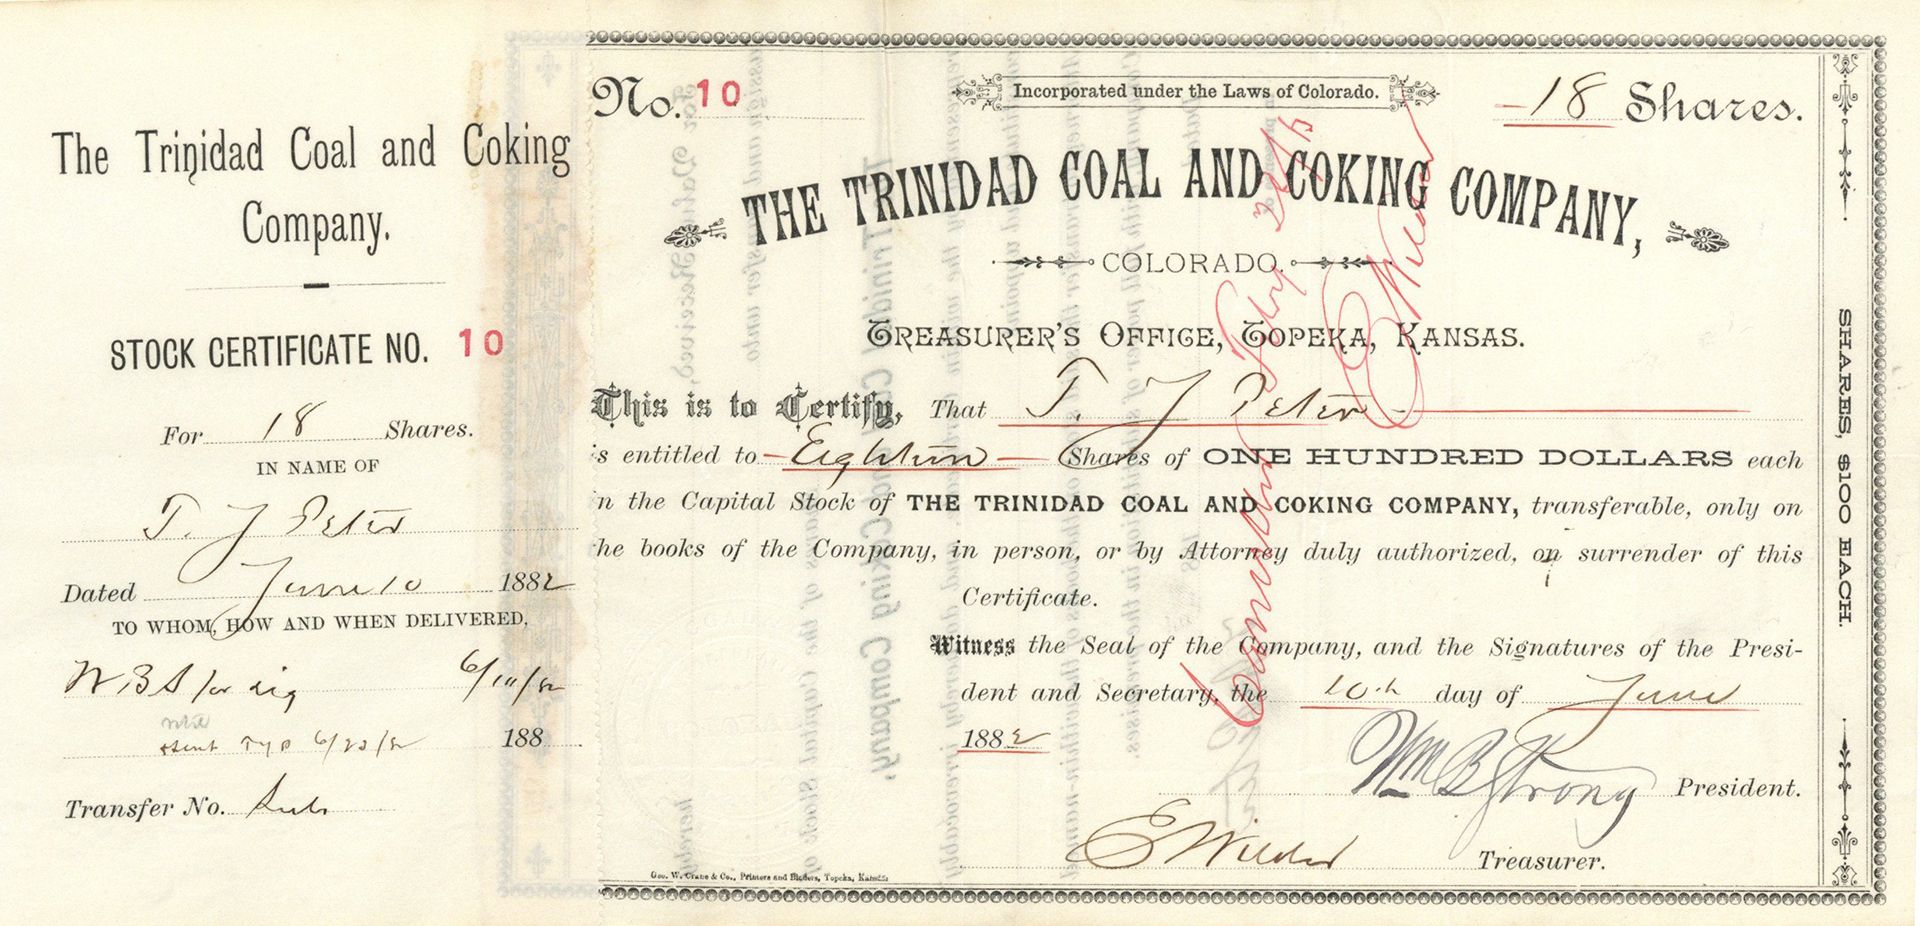 The Trinidad Coal and Coking
Company.
STOCK CERTIFICATE NO. 10
For 18 Shares.
IN NAME OF
T. J Peter
Dated June 10 1882
TO WHOM, HOW AND WHEN DELIVERED,
W B S for sig 6/10/82
6/23/82 188
Transfer No.
No. 10
Incorporated under the Laws of Colorado.
-18 Shares.
THE TRINIDAD COAL AND COKING COMPANY,
COLORADO.
TREASURER'S OFFICE, TOPEKA, KANSAS.
This is to Certify, That T. J Peter
is entitled to - Eighteen - Shares of ONE HUNDRED DOLLARS each
in the Capital Stock of THE TRINIDAD COAL AND COKING COMPANY, transferable, only on
he books of the Company, in person, or by Attorney duly authorized, on surrender of this
Certificate.
Witness the Seal of the Company, and the Signatures of the Presi-
dent and Secretary, the 10th day of June
1882
Wm B Strong President.
E Wilder Treasurer.
Geo. W. Crane & Co., Printers and Binders, Topeka, Kansas
SHARES, $100 EACH.
E Wilder